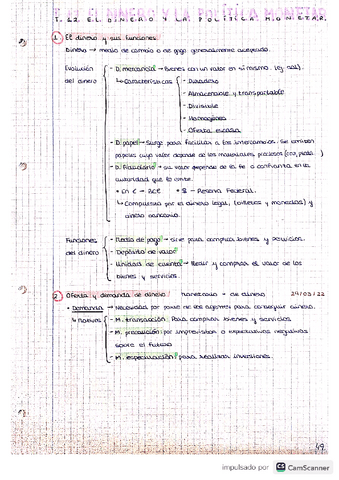 T. 12. EL DINERO Y LA POLÍTICA MONETAR.
1 El dinero y sus funciones
Dinero → medio de cambio o de pago generalmente aceptado.
Evolución del dinero
- D. mercancía → Bienes con un valor en sí mismo. (ej. sal).
↳ Características
- Duradero
- Almacenable y transportable
- Divisible
- Homogéneo
- Oferta escasa
- D. papel → Surge para facilitar los intercambios. Se emiten
papeles cuyo valor depende de los materiales preciosos (oro, plata...)
- D. fiduciario → su valor depende de la fe o confianza en la
autoridad que lo emite.
• En € → BCE • $ - Reserva Federal.
↳ Compuesto por el dinero legal (billetes y monedas) y
dinero bancario.
Funciones del dinero
- Medio de pago → sirve para comprar bienes y servicios.
- Depósito de valor
- Unidad de cuenta → Medir y comparar el valor de los
bienes y servicios.
2 Oferta y demanda de dinero 24/03/22
• Demanda → Necesidad por parte de los agentes para conseguir dinero.
↳ Motivos
- M. transacción. Para comprar bienes y servicios
- M. precaución: por imprevistos o expectativas negativas
sobre el futuro
- M. especulación: para realizar inversiones.
49
impulsado por CS CamScanner